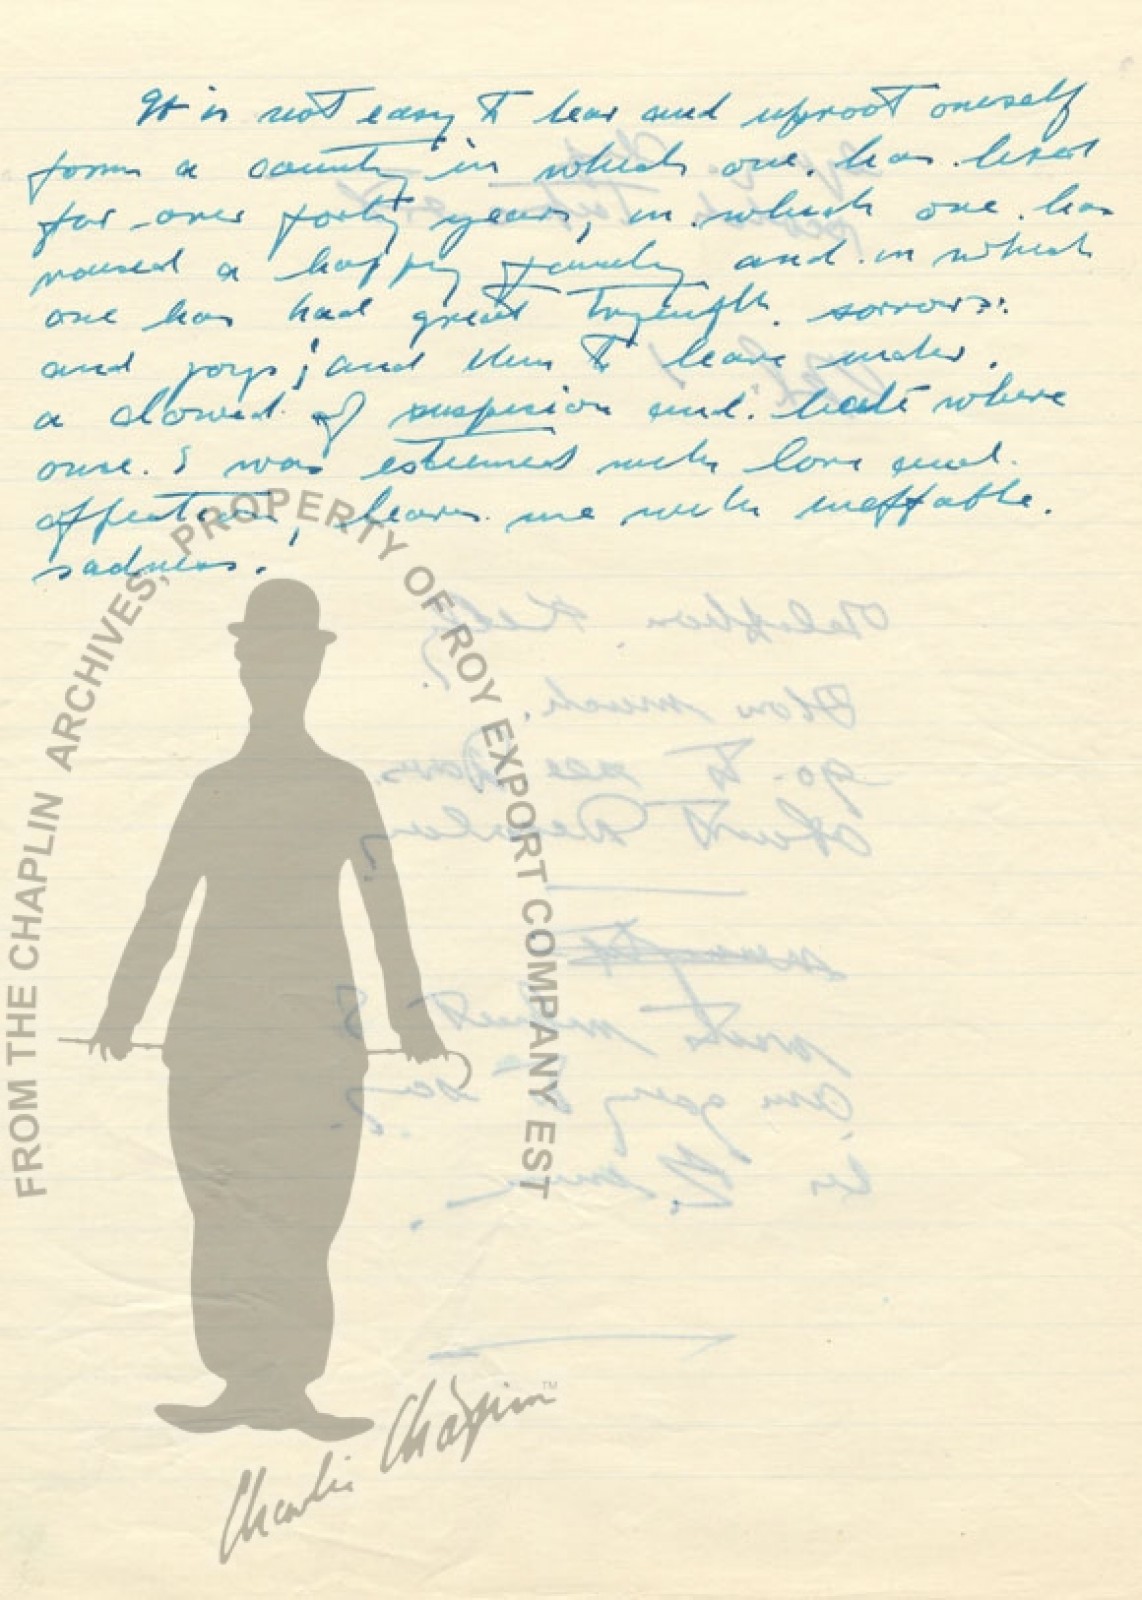 It is not easy to tear and uproot oneself
form a country in which one has lived
for over forty years, in which one has
raised a happy family and in which
one has had great sorrows
and joys; and then to leave under
a clowed of suspision and hate where
once I was esteemed with love and
affection, leaves me with ineffable
sadness.
FROM THE CHAPLIN ARCHIVES, PROPERTY OF ROY EXPORT COMPANY EST
Charlie Chaplin
TM